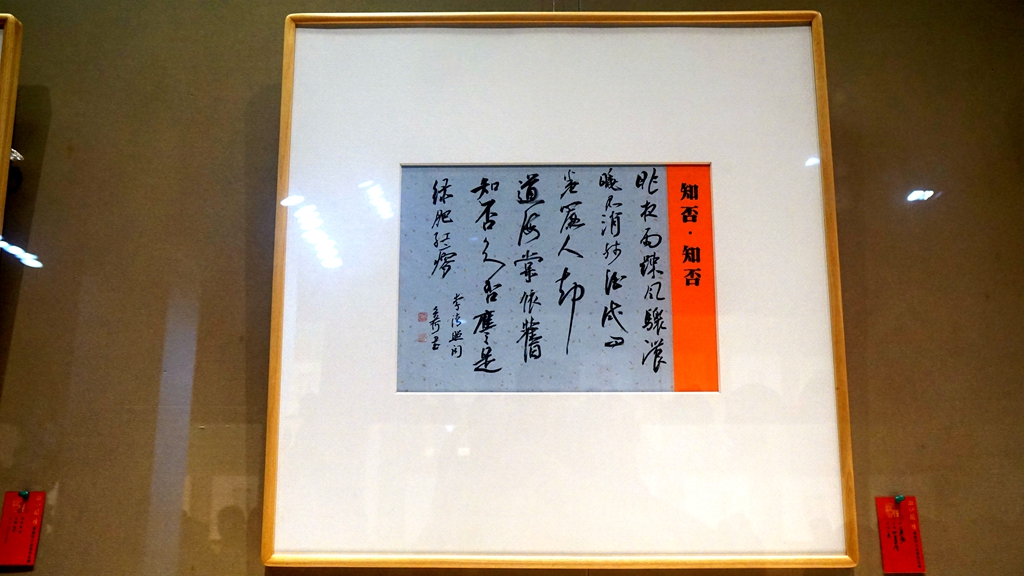 知否·知否
昨夜雨疎风驟濃
睡不消残酒试问
卷簾人却
道海棠依舊
知否知否應是
绿肥红瘦
李清照词